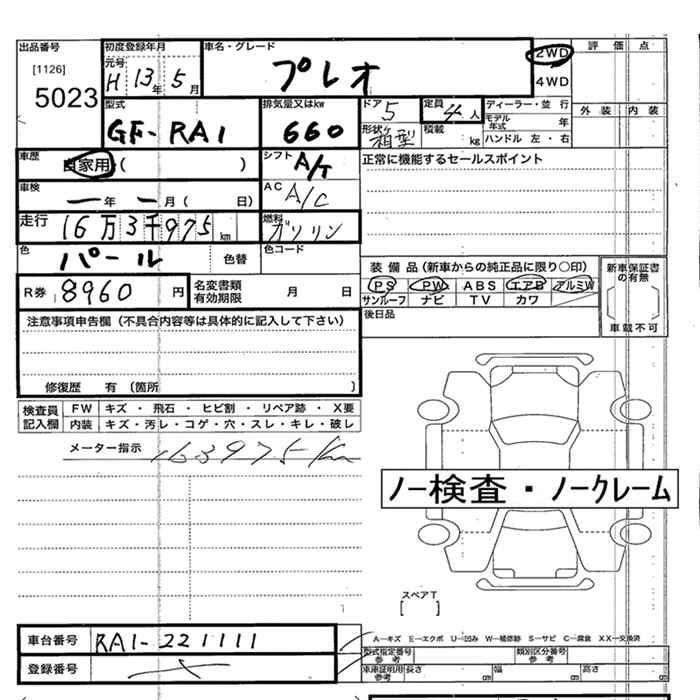 出品番号 初度登録年月 車名・グレード 2WD 評価点
[1126] 元号 H 13年 5月 プレオ 4WD
5023 型式 排気量又はkw ドア 5 定員 4人 ディーラー・並行 外装 内装
GF-RA1 660 形状 箱型 積載 kg モデル年式 年
ハンドル 左・右
車歴 自家用( ) シフト A/T 正常に機能するセールスポイント
車検 ー年 ー月( 日) AC A/C
走行 16万3千975km 燃料 ガソリン
色 パール 色替 色コード
装備品(新車からの純正品に限り○印) 新車保証書の有無
R券 8960円 名変書類有効期限 月 日 PS PW ABS エアB アルミW
サンルーフ ナビ TV カワ
車載不可
注意事項申告欄(不具合内容等は具体的に記入して下さい) 後日品
修復歴 有(箇所 )
検査員記入欄 FW キズ・飛石・ヒビ割・リペア跡・X要
内装 キズ・汚レ・コゲ・穴・スレ・キレ・破レ
メーター指示 163975km
ノー検査・ノークレーム
スペアT
[ ]
車台番号 RA1-221111
A―キズ E―エクボ U―凹み W―補修跡 S―サビ C―腐食 XX―交換済
登録番号
型式指定番号 参考 類別区分番号 参考
車庫証明用 参考 長さ cm 幅 cm 高さ cm